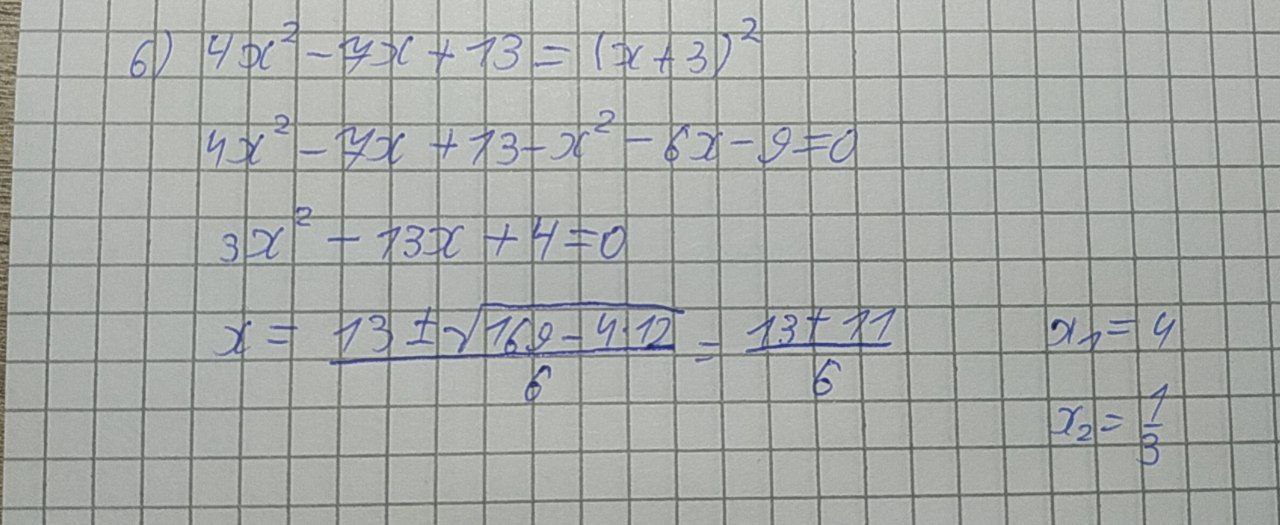 6) 4x² - 7x + 13 = (x + 3)²
4x² - 7x + 13 - x² - 6x - 9 = 0
3x² - 13x + 4 = 0
x = \frac{13 ± √(169 - 4·12)}{6} = \frac{13 ± 11}{6} x₁ = 4
x₂ = \frac{1}{3}